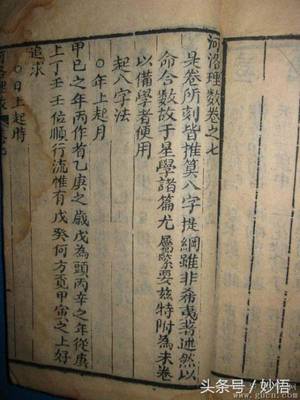 河洛理數卷之七
是卷所刻皆推算八字提綱雖非希夷著述然以
命合數故于星學諸篇尤屬緊要茲特附為末卷
以備學者使用
起八字法
○年上起月
甲巳之年丙作首乙庚之歲戊為頭丙辛之年從庚
上丁壬壬位順行流惟有戊癸何方覓甲寅之上好
追求
○日上起時
头条号/妙悟